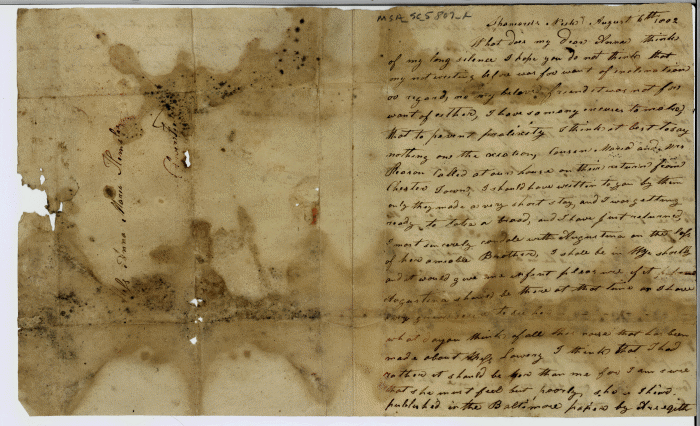 MSA SC 5807-1
August 6th 1802
What does my Dear Anna think
of my long silence I hope you do not think that
my not writing before was for want of inclination
or regard, no my beloved friend it was not for
want of either, I have so many excuses to make
that to prevent I think it best to say
nothing on the Cousin Maria and
called at our house on their return from
Chester Town, I should have written to you by them
only they made a very short stay, and I was getting
ready to take a and I have just returned
I most sincerely condole with Augustina on the loss
of her amiable Brother, I shall be in shortly
and it would give me infinit pleasure if
Augustina should be there at that time as I have
very to see her
what do you think of all the noise that has been
made about Miss I think that I had
rather it should be her than me for I am sure
that she must feel but poorly, she
published in the Baltimore paper by
Miss Anna Maria Hemsley